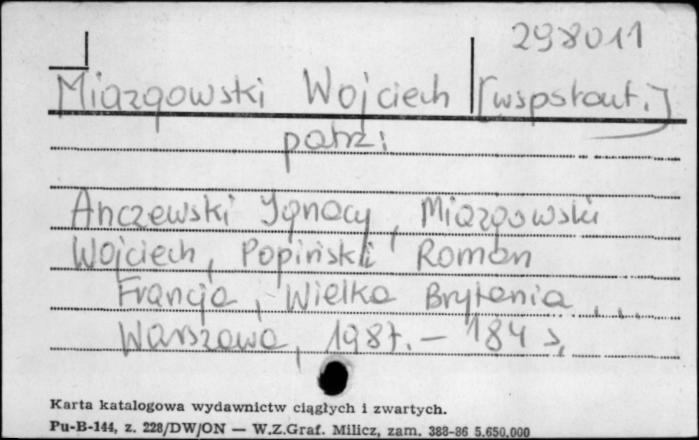 298011
Miazgowski Wojciech [wspsłaut.]
patrz:
Anczewski Ignacy, Miazgowski
Wojciech, Popiński Roman
Francja, Wielka Brytania ...
Warszawa, 1987. — 184 s.
Karta katalogowa wydawnictw ciągłych i zwartych.
Pu-B-144, z. 228/DW/ON — W.Z.Graf. Milicz, zam. 388-86 5.650.000